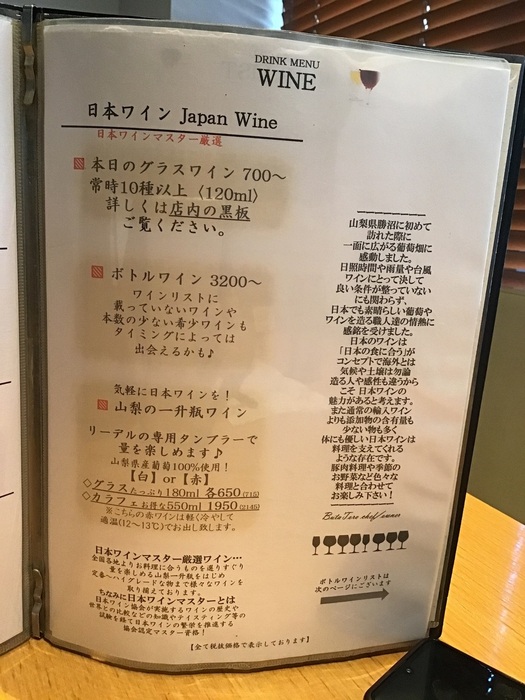 DRINK MENU
WINE
日本ワイン Japan Wine
日本ワインマスター厳選
本日のグラスワイン 700～
常時10種以上〈120ml〉
詳しくは店内の黒板
ご覧ください。
ボトルワイン 3200～
ワインリストに
載っていないワインや
本数の少ない希少ワインも
タイミングによっては
出会えるかも♪
気軽に日本ワインを！
山梨の一升瓶ワイン
リーデルの専用タンブラーで
量を楽しめます♪
山梨県産葡萄100%使用！
【白】or【赤】
◇グラスたっぷり180ml 各650(715)
◇カラフェお得な550ml 1950(2145)
※こちらの赤ワインは軽く冷やして
適温(12～13℃)でお出し致します。
日本ワインマスター厳選ワイン…
全国各地よりお料理に合うものを選りすぐり
量を楽しめる山梨一升瓶をはじめ
定番～ハイグレードな物まで様々なワインを
取り揃えております。
ちなみに日本ワインマスターとは
日本ワイン協会が実施するワインの歴史や
世界との比較などの知識やテイスティング等の
試験を経て日本ワインの繁栄を推進する
協会認定マスター資格！
山梨県勝沼に初めて
訪れた際に
一面に広がる葡萄畑に
感動しました。
日照時間や雨量や台風
ワインにとって決して
良い条件が整っていない
にも関わらず、
日本でも素晴らしい葡萄や
ワインを造る職人達の情熱に
感銘を受けました。
日本のワインは
「日本の食に合う」が
コンセプトで海外とは
気候や土壌は勿論
造る人や感性も違うから
こそ 日本ワインの
魅力があると考えます。
また通常の輸入ワイン
よりも添加物の含有量も
少ない物も多く
体にも優しい日本ワインは
料理を支えてくれる
ような存在です。
豚肉料理や季節の
お野菜など色々な
料理と合わせて
お楽しみ下さい！
Buta Taro chef/owner
ボトルワインリストは
次のページにございます
【全て税抜価格で表示しております】